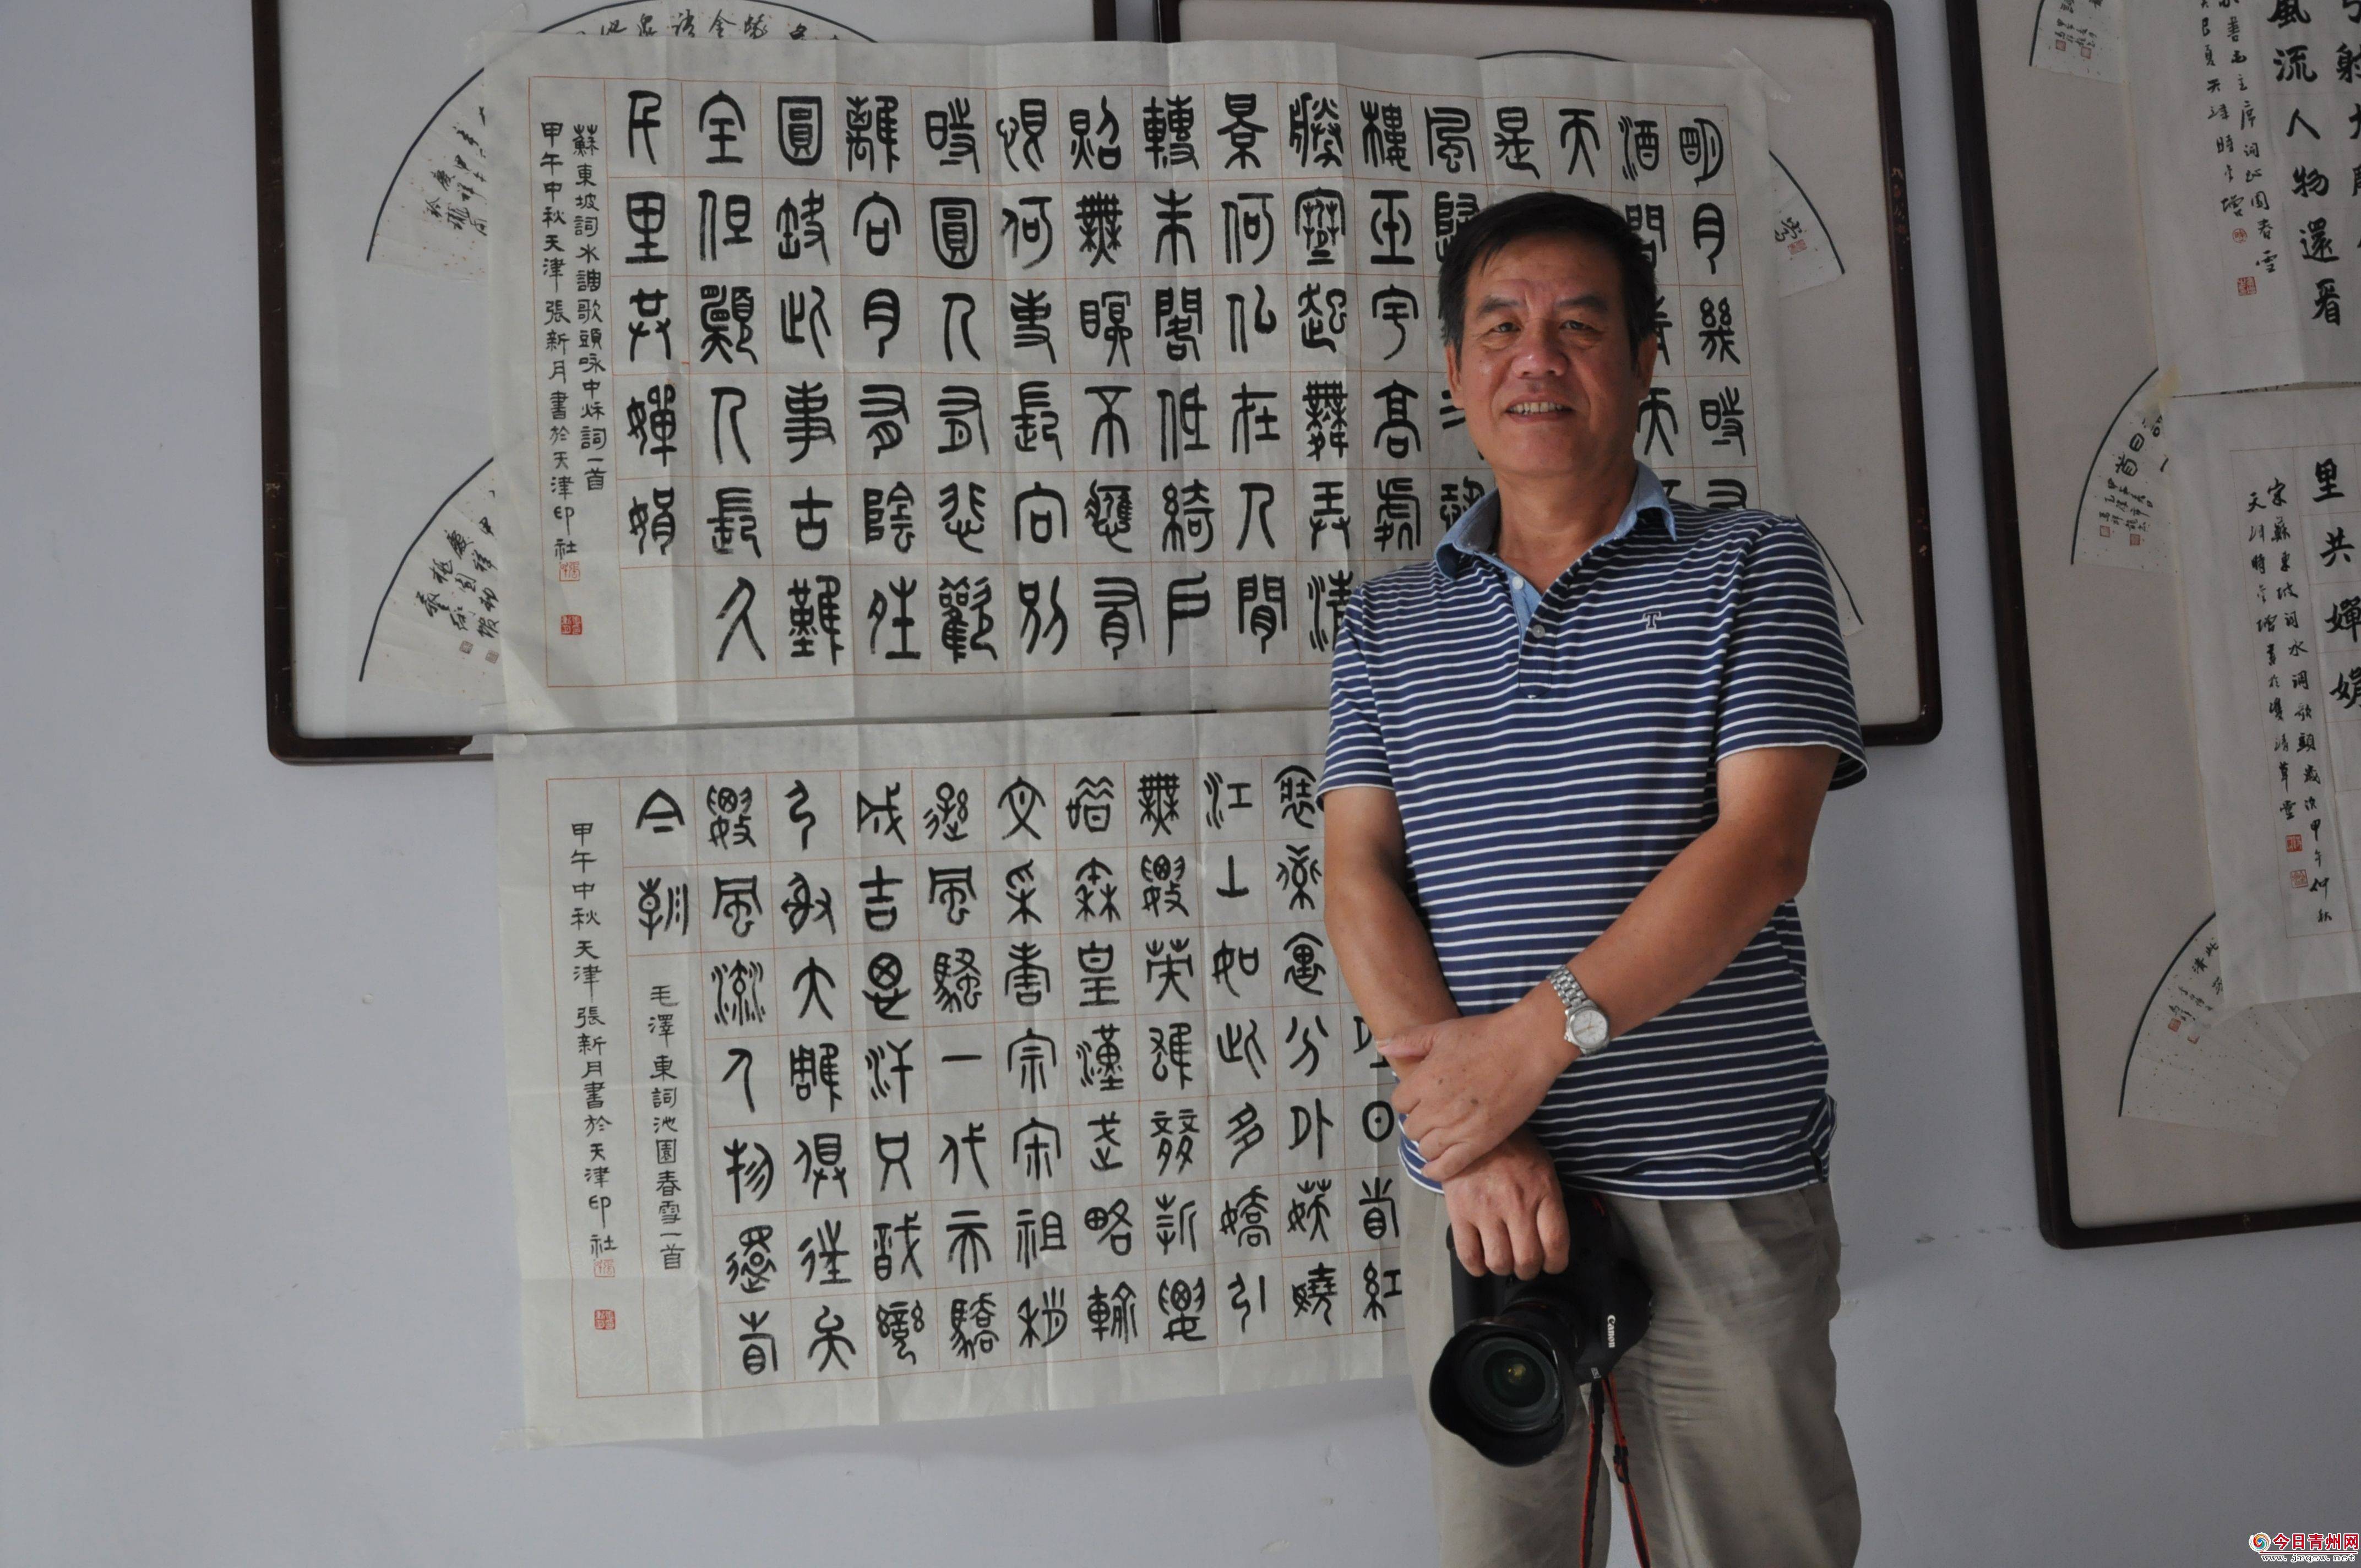 明月幾時有
酒問
天
是
風歸
樓玉宇高處
勝寒起舞弄清
景何似在人間
轉朱閣低綺戶
照無眠不應有
恨何事長向別
時圓人有悲歡
離合月有陰晴
圓缺此事古難
全但願人長久
千里共嬋娟
蘇東坡詞水調歌頭咏中秋詞一首
甲午中秋天津張新月書於天津印社
日看紅
裝素裹分外妖嬈
江山如此多嬌引
無數英雄競折腰
惜秦皇漢武略輸
文采唐宗宋祖稍
遜風騷一代天驕
成吉思汗只識彎
弓射大雕俱往矣
數風流人物還看
今朝
毛澤東詞沁園春雪一首
甲午中秋天津張新月書於天津印社
風流人物還看
里共嬋娟
宋蘇東坡詞水調歌頭歲次甲午仲秋
T
Canon
今日青州网
www.jrqzw.net